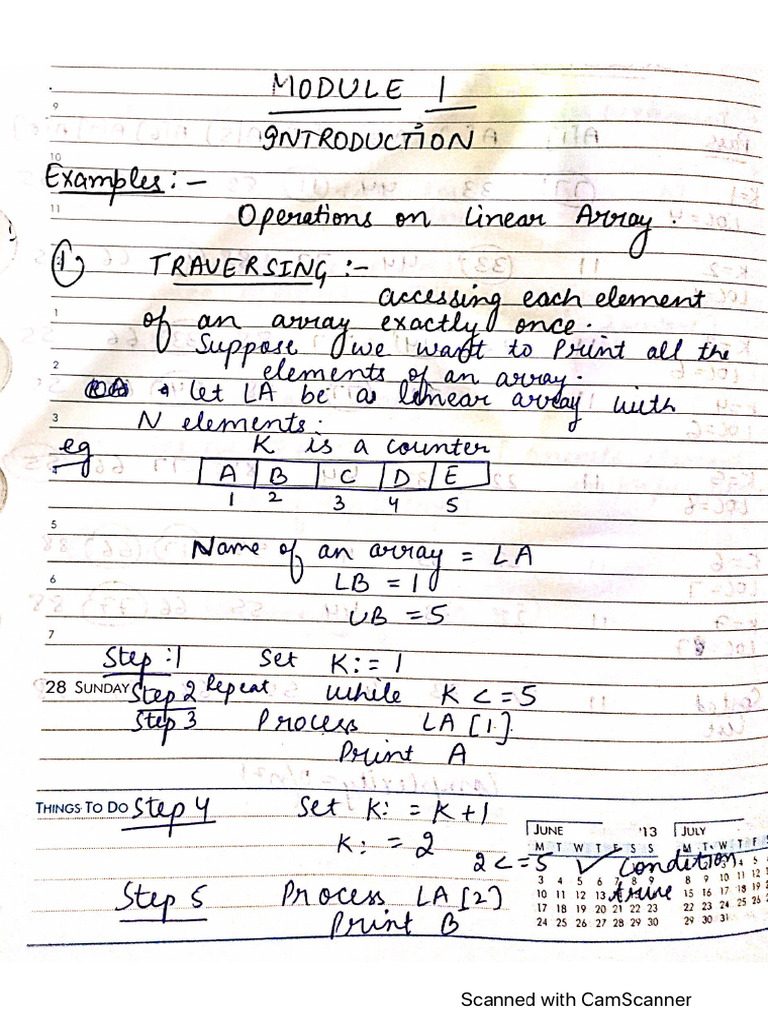 MODULE 1
INTRODUCTION
Examples:-
Operations on Linear Array.
1) TRAVERSING :-
accessing each element
of an array exactly once.
Suppose we want to Print all the
elements of an array.
let LA be a linear array with
N elements:
eg K is a counter
A B C D E
1 2 3 4 5
Name of an array = LA
LB = 1
UB = 5
Step :1 Set K:= 1
28 SUNDAY Step 2 Repeat while K <= 5
Step 3 Process LA [1].
Print A
THINGS TO DO Step 4 Set K: = K+1
K: = 2
2 <= 5 ✓ Condition
true
Step 5 Process LA [2]
Print B
9
10
11
1
2
3
5
6
7
JUNE '13 JULY
M T W T F S S M T W T F
3 4 5 6 7 8 9 8 9 10 11 12
10 11 12 13 15 16 17 18 19
17 18 19 20 21 22 23 22 23 24 25 26
24 25 26 27 28 29 30 29 30 31
Scanned with CamScanner